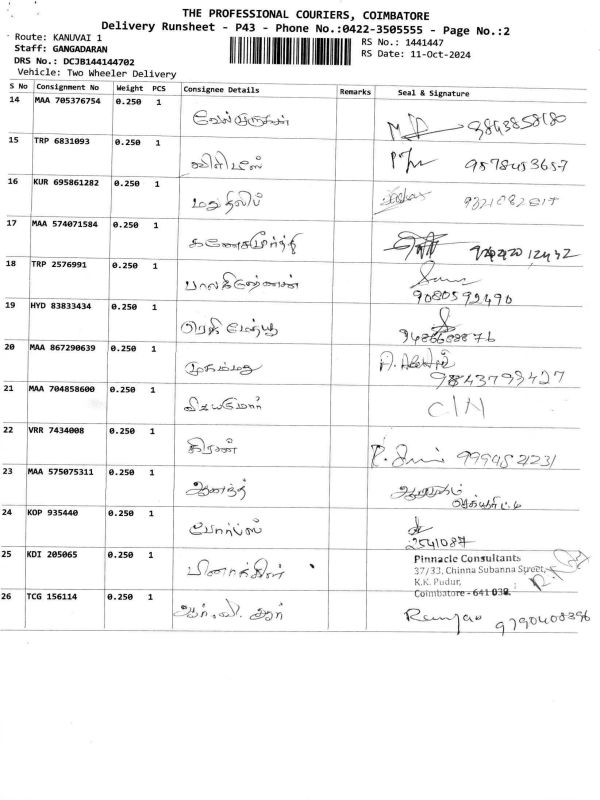 THE PROFESSIONAL COURIERS, COIMBATORE
Delivery Runsheet - P43 - Phone No.:0422-3505555 - Page No.:2
Route: KANUVAI 1
RS No.: 1441447
Staff: GANGADARAN
RS Date: 11-Oct-2024
DRS No.: DCJB144144702
Vehicle: Two Wheeler Delivery
S No Consignment No Weight PCS Consignee Details Remarks Seal & Signature
14 MAA 705376754 0.250 1 வேல்முருகன் 9843858180
15 TRP 6831093 0.250 1 9578453657
16 KUR 695861282 0.250 1
17 MAA 574071584 0.250 1 கணேசமூர்த்தி
18 TRP 2576991 0.250 1 பாலகிருஷ்ணன்
9080592490
19 HYD 83833434 0.250 1
9486688876
20 MAA 867290639 0.250 1 முகம்மது
9843793427
21 MAA 704858600 0.250 1 C/N
22 VRR 7434008 0.250 1 கிரண்
23 MAA 575075311 0.250 1 ஆனந்த்
24 KOP 935440 0.250 1
2541087
25 KDI 205065 0.250 1
Pinnacle Consultants
37/33, Chinna Subanna Street,
K.K. Pudur,
Coimbatore - 641 038.
26 TCG 156114 0.250 1 ஆர்.வி. ஆர் 9790408396